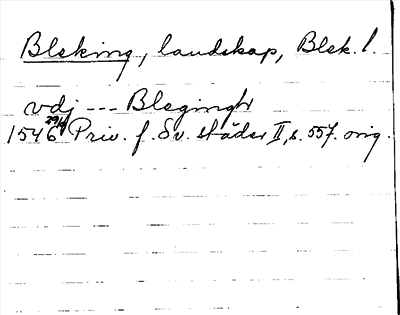 Bleking, landskap, Blek. l.
vdj --- Blegingh
1546 29/4 Priv. f. Sv. städer II, s. 557. orig.